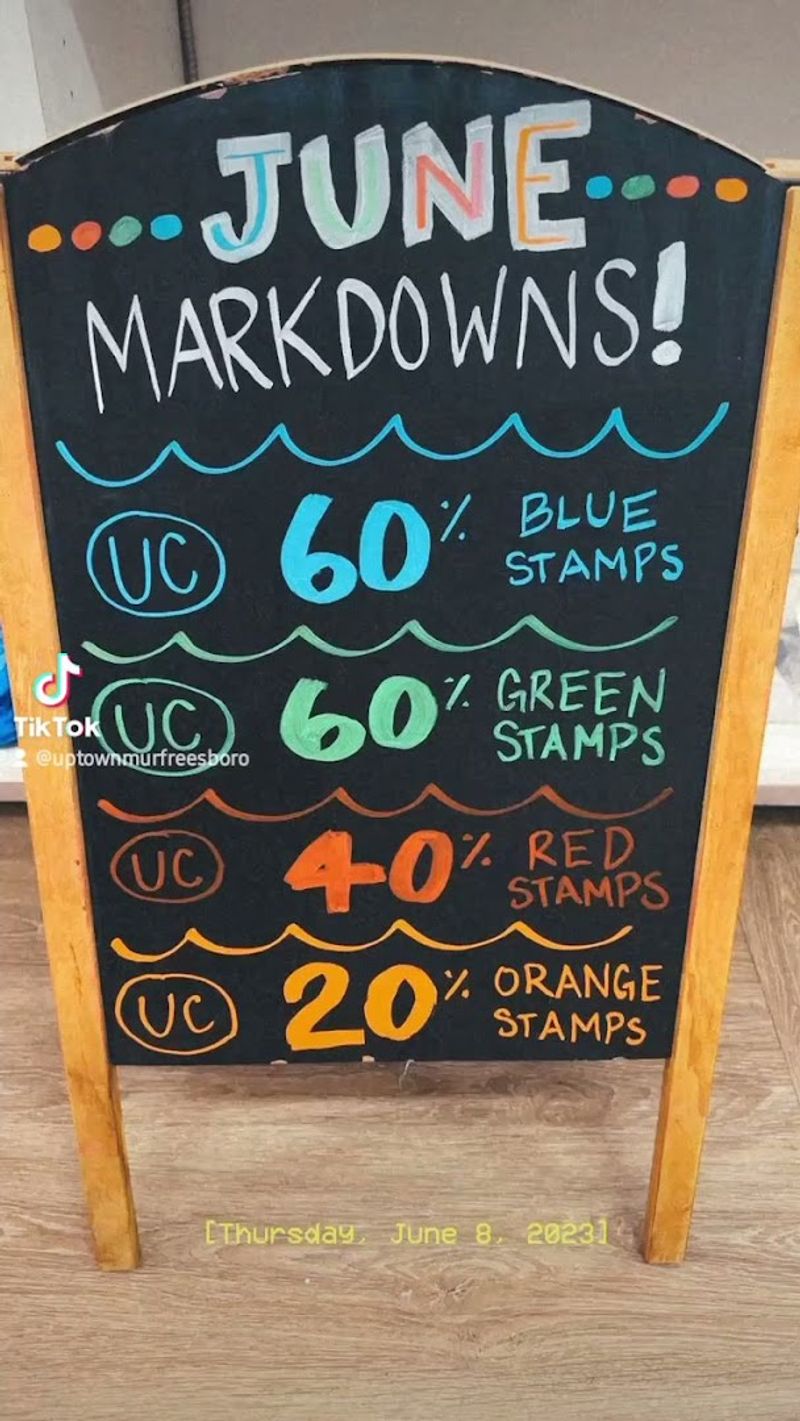 JUNE
MARKDOWNS!
UC 60% BLUE
STAMPS
UC 60% GREEN
STAMPS
TikTok
@uptownmurfreesboro
UC 40% RED
STAMPS
UC 20% ORANGE
STAMPS
[Thursday, June 8, 2023]